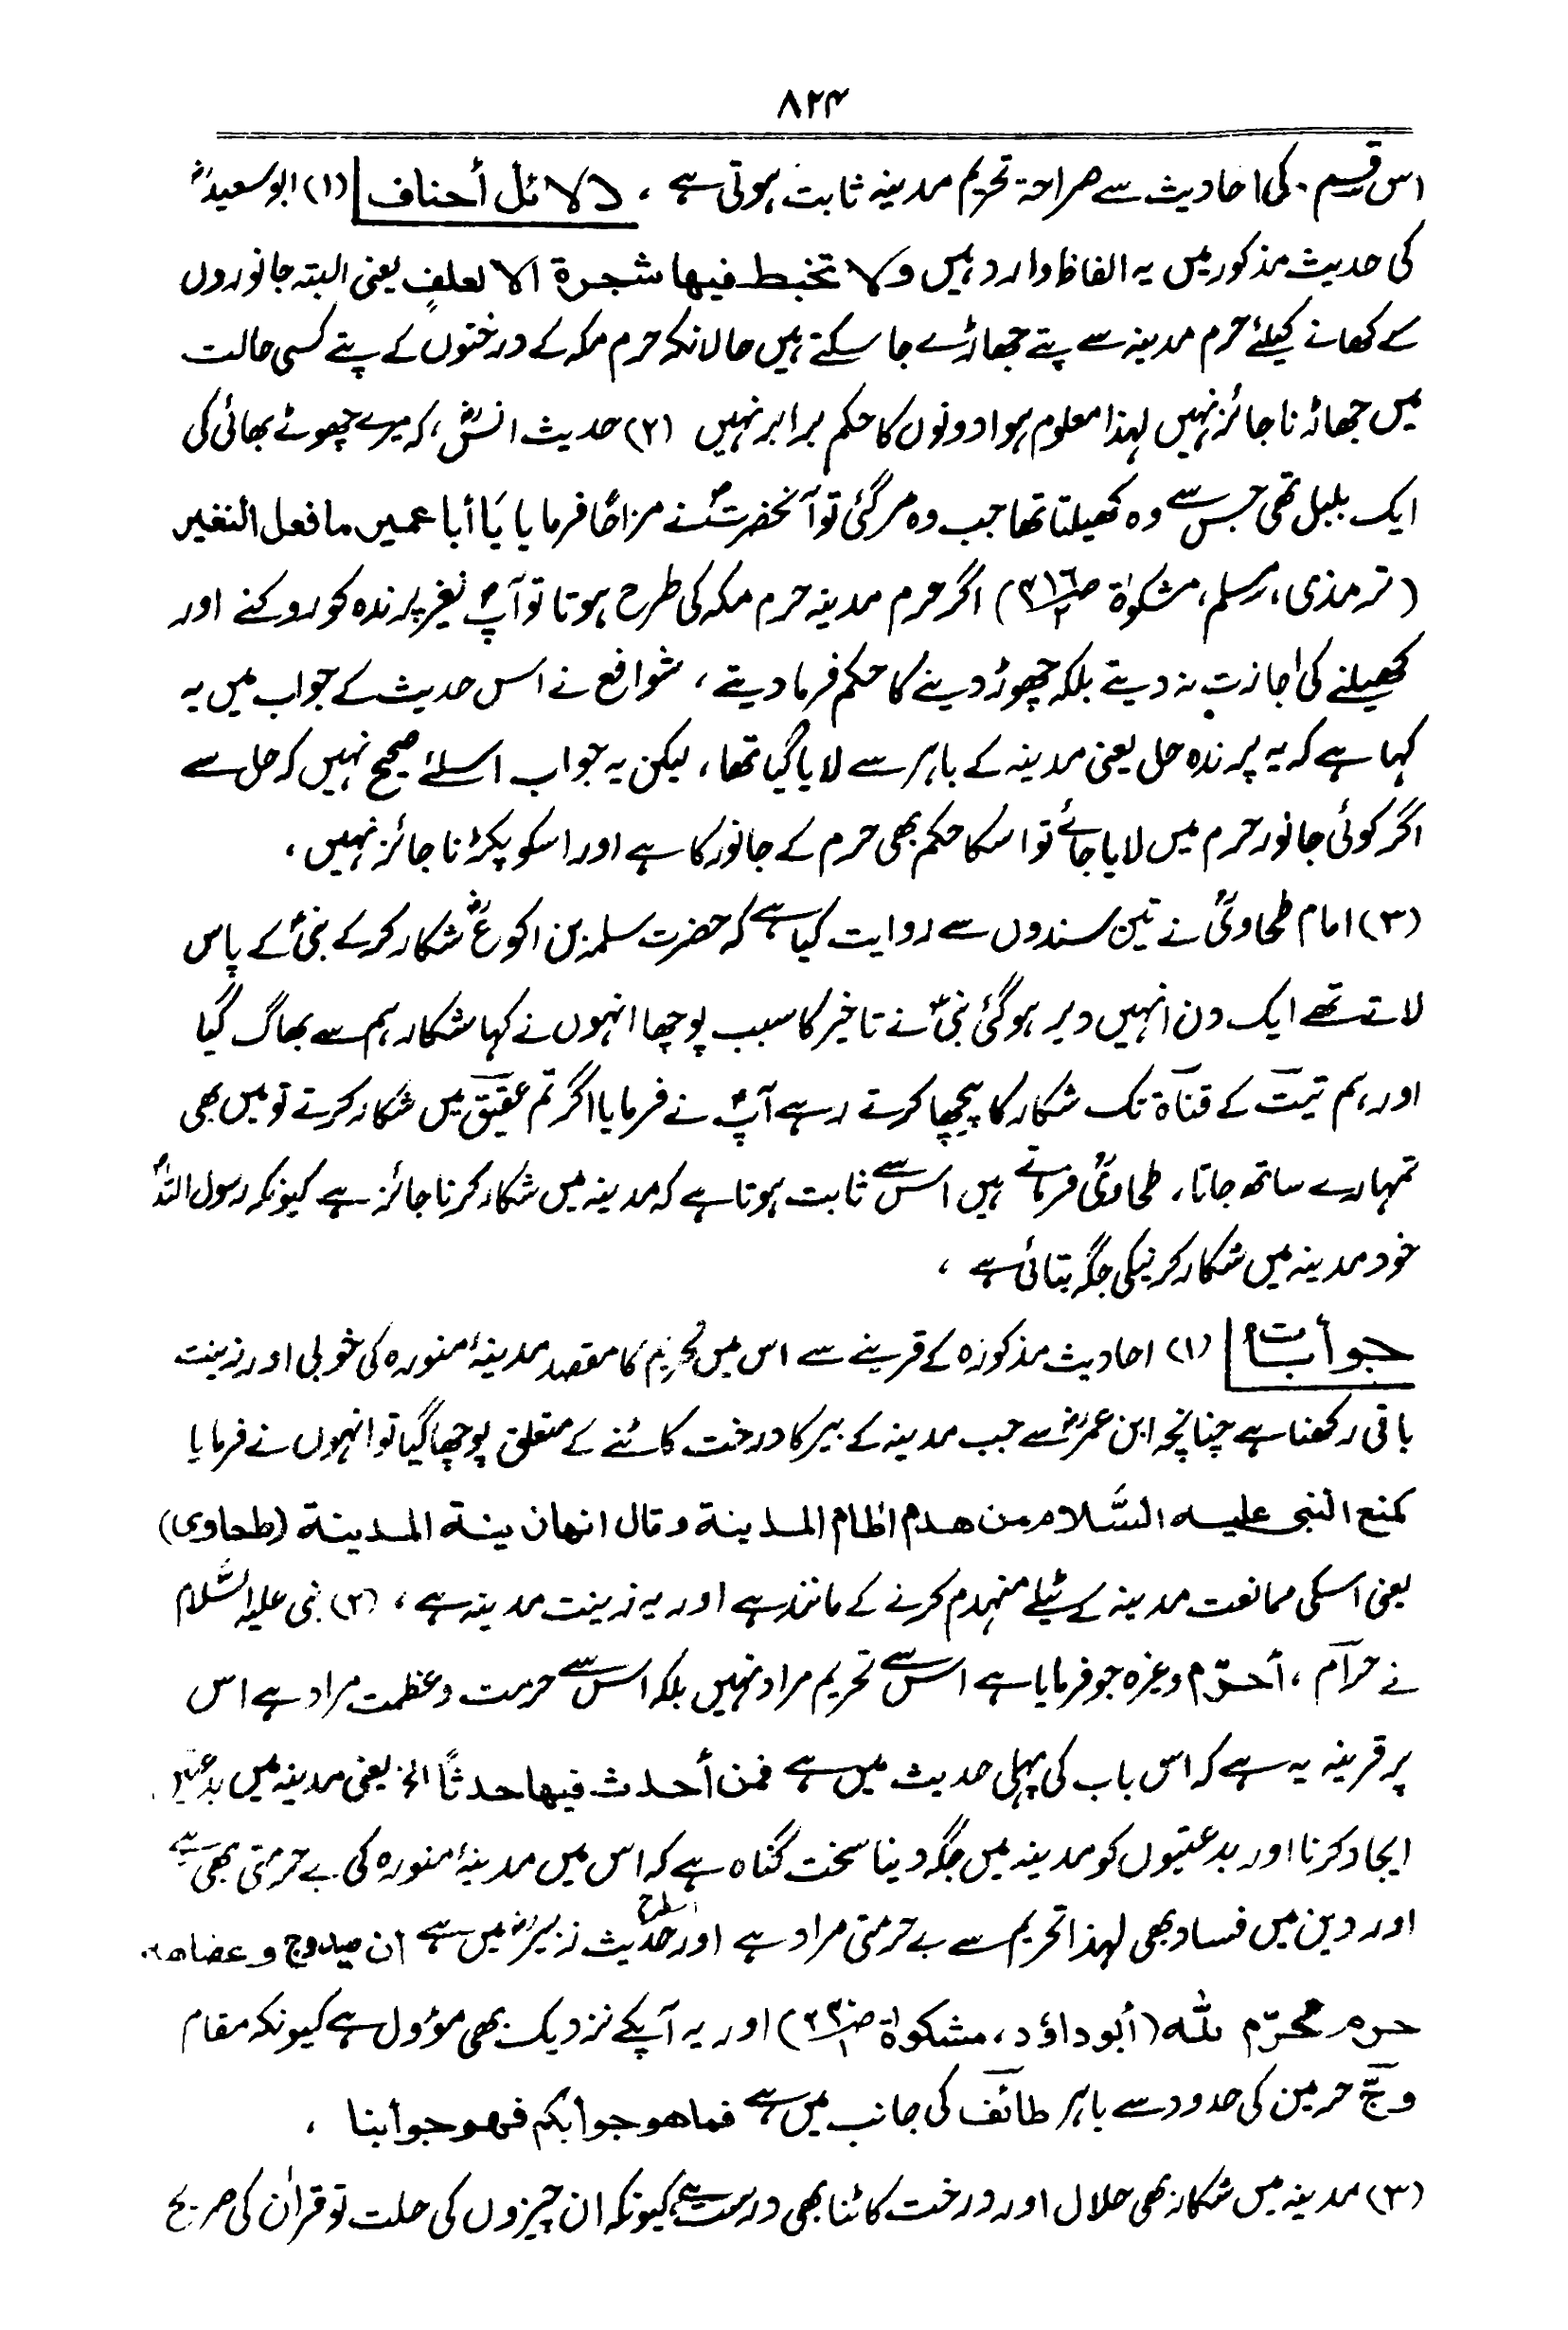 ۸۲۴
اس قسم کی احادیث سے صراحۃ تحریم مدینہ ثابت ہوتی ہے ، دلائل أحناف (۱) ابو سعیدؓ
کی حدیث مذکور میں یہ الفاظ وارد ہیں ولا تخبط فیھا شجرۃ الا لعلفٍ یعنی البتہ جانوروں
کے کھانے کیلئے حرم مدینہ سے پتے جھاڑے جا سکتے ہیں حالانکہ حرم مکہ کے درختوں کے پتے کسی حالت
میں جھاڑنا جائز نہیں لہذا معلوم ہوا دونوں کا حکم برابر نہیں (۲) حدیث انسؓ ، کہ میرے چھوٹے بھائی کی
ایک بلبل تھی جس سے وہ کھیلتا تھا جب وہ مرگئی تو آنحضرتؐ نے مزاحًا فرمایا یَا أبا عمیر ما فعل النغیر
(ترمذی ، مسلم ، مشکوٰۃ ص۴۱۶/۲) اگر حرم مدینہ حرم مکہ کی طرح ہوتا تو آپؐ نغیر پرندہ کو روکنے اور
کھیلنے کی اجازت نہ دیتے بلکہ چھوڑ دینے کا حکم فرما دیتے ، شوافع نے اس حدیث کے جواب میں یہ
کہا ہے کہ یہ پرندہ حل یعنی مدینہ کے باہر سے لایا گیا تھا ، لیکن یہ جواب اسلئے صحیح نہیں کہ حل سے
اگر کوئی جانور حرم میں لایا جائے تو اسکا حکم بھی حرم کے جانور کا ہے اور اسکو پکڑنا جائز نہیں ،
(۳) امام طحاویؒ نے تین سندوں سے روایت کیا ہے کہ حضرت سلمہ بن اکوعؓ شکار کرکے نبیؐ کے پاس
لاتے تھے ایک دن انہیں دیر ہوگئی نبیؐ نے تاخیر کا سبب پوچھا انہوں نے کہا شکار ہم سے بھاگ گیا
اور ہم تیت کے قناۃ تک شکار کا پیچھا کرتے رہے آپؐ نے فرمایا اگر تم عقیق میں شکار کرتے تو میں بھی
تمہارے ساتھ جاتا ، طحاویؒ فرماتے ہیں اس سے ثابت ہوتا ہے کہ مدینہ میں شکار کرنا جائز ہے کیونکہ رسول اللہؐ
خود مدینہ میں شکار کرنیکی جگہ بتائی ہے ،
جوابات (۱) احادیث مذکورہ کے قرینے سے اس میں تحریم کا مقصد مدینۂ منورہ کی خوبی اور زینت
باقی رکھنا ہے چنانچہ ابن عمرؓ سے جب مدینہ کے بیر کا درخت کاٹنے کے متعلق پوچھا گیا تو انہوں نے فرمایا
کمنع النبی علیہ السَّلام من ھدم اٰطام المدینۃ وقال انھا زینۃ المدینۃ (طحاوی)
یعنی اسکی ممانعت مدینہ کے ٹیلے منہدم کرنے کے مانند ہے اور یہ زینت مدینہ ہے ، (۲) نبی علیہ السَّلام
نے حرام ، أحرّم وغیرہ جو فرمایا ہے اس سے تحریم مراد نہیں بلکہ اس سے حرمت وعظمت مراد ہے اس
پر قرینہ یہ ہے کہ اس باب کی پہلی حدیث میں ہے فمن أحدث فیھا حدثًا الخ یعنی مدینہ میں بدعتیں
ایجاد کرنا اور بدعتیوں کو مدینہ میں جگہ دینا سخت گناہ ہے کہ اس میں مدینۂ منورہ کی بے حرمتی بھی ہے
اور دین میں فساد بھی لہذا تحریم سے بے حرمتی مراد ہے اور اسطرح حدیث زبیرؓ میں ہے ان صید وج وعضاھہ
حرم محرّم للہ (أبوداؤد ، مشکوٰۃ) اور یہ آپکے نزدیک بھی مؤول ہے کیونکہ مقام
وجّ حرمین کی حدود سے باہر طائف کی جانب میں ہے فما ھو جوابکم فھو جوابنا ،
(۳) مدینہ میں شکار بھی حلال اور درخت کاٹنا بھی درست ہے کیونکہ ان چیزوں کی حلت تو قراٰن کی صریح